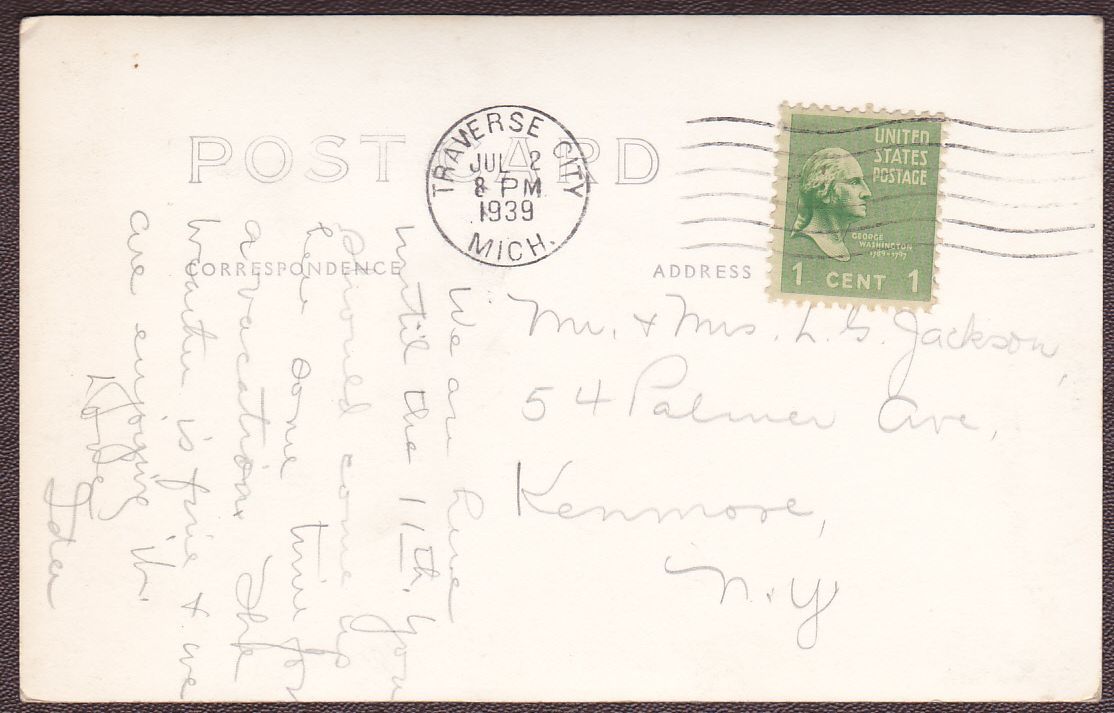 POST CARD
TRAVERSE CITY
JUL 2
8 PM
1939
MICH.
UNITED
STATES
POSTAGE
GEORGE
WASHINGTON
1789-1797
1 CENT 1
CORRESPONDENCE
ADDRESS
We are here
until the 11th. You
should come up
here some time for
a vacation. The
weather is fine & we
are enjoying it.
Ida
Mr. & Mrs. L. G. Jackson,
54 Palmer Ave,
Kenmore,
N.Y